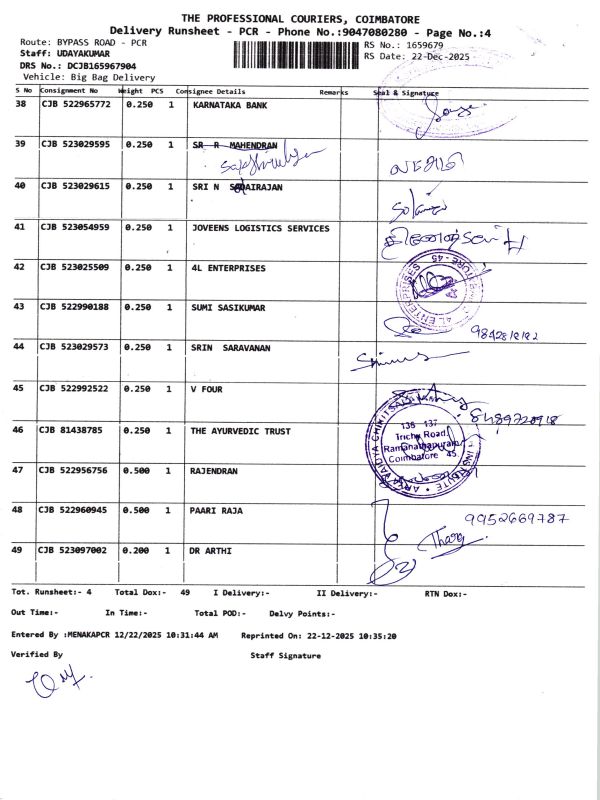 THE PROFESSIONAL COURIERS, COIMBATORE
Delivery Runsheet - PCR - Phone No.:9047080280 - Page No.:4
Route: BYPASS ROAD - PCR
Staff: UDAYAKUMAR
DRS No.: DCJB165967904
Vehicle: Big Bag Delivery
RS No.: 1659679
RS Date: 22-Dec-2025
S No Consignment No Weight PCS Consignee Details Remarks Seal & Signature
38 CJB 522965772 0.250 1 KARNATAKA BANK
39 CJB 523029595 0.250 1 SR R MAHENDRAN
40 CJB 523029615 0.250 1 SRI N SADAIRAJAN
41 CJB 523054959 0.250 1 JOVEENS LOGISTICS SERVICES
42 CJB 523025509 0.250 1 4L ENTERPRISES
43 CJB 522990188 0.250 1 SUMI SASIKUMAR
44 CJB 523029573 0.250 1 SRIN SARAVANAN
45 CJB 522992522 0.250 1 V FOUR
8489720918
46 CJB 81438785 0.250 1 THE AYURVEDIC TRUST
136 137
Trichy Road
Ramanathapuram
Coimbatore 45
47 CJB 522956756 0.500 1 RAJENDRAN
48 CJB 522960945 0.500 1 PAARI RAJA
9952669787
49 CJB 523097002 0.200 1 DR ARTHI
Tot. Runsheet:- 4 Total Dox:- 49 I Delivery:- II Delivery:- RTN Dox:-
Out Time:- In Time:- Total POD:- Delvy Points:-
Entered By :MENAKAPCR 12/22/2025 10:31:44 AM Reprinted On: 22-12-2025 10:35:20
Verified By Staff Signature